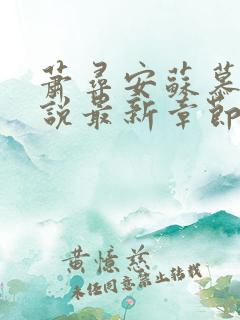 萧寻安蘇慕
說最新章節
黄憶慈
未经同意禁止转载